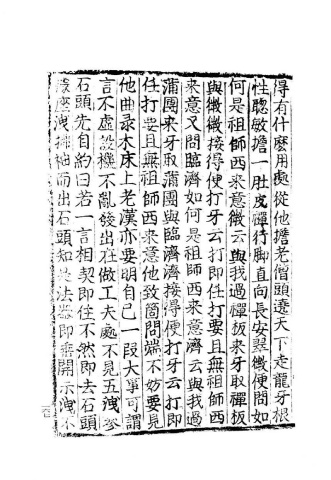 得有什麼用處從他擔老僧頭遶天下走龍牙根
性聰敏擔一肚皮禪行脚直向長安翠微便問如
何是祖師西來意微云與我過禪板來牙取禪板
與微微接得便打牙云打即任打要且無祖師西
來意又問臨濟如何是祖師西來意濟云與我過
蒲團來牙取蒲團與臨濟濟接得便打牙云打即
任打要且無祖師西來意他致箇問端不妨要見
他曲彔木床上老漢亦要明自己一段大事可謂
言不虛設機不亂發出在做工夫處不見五洩參
石頭先自約曰若一言相契即住不然即去石頭
據座洩拂袖而出石頭知是法器即垂開示洩不